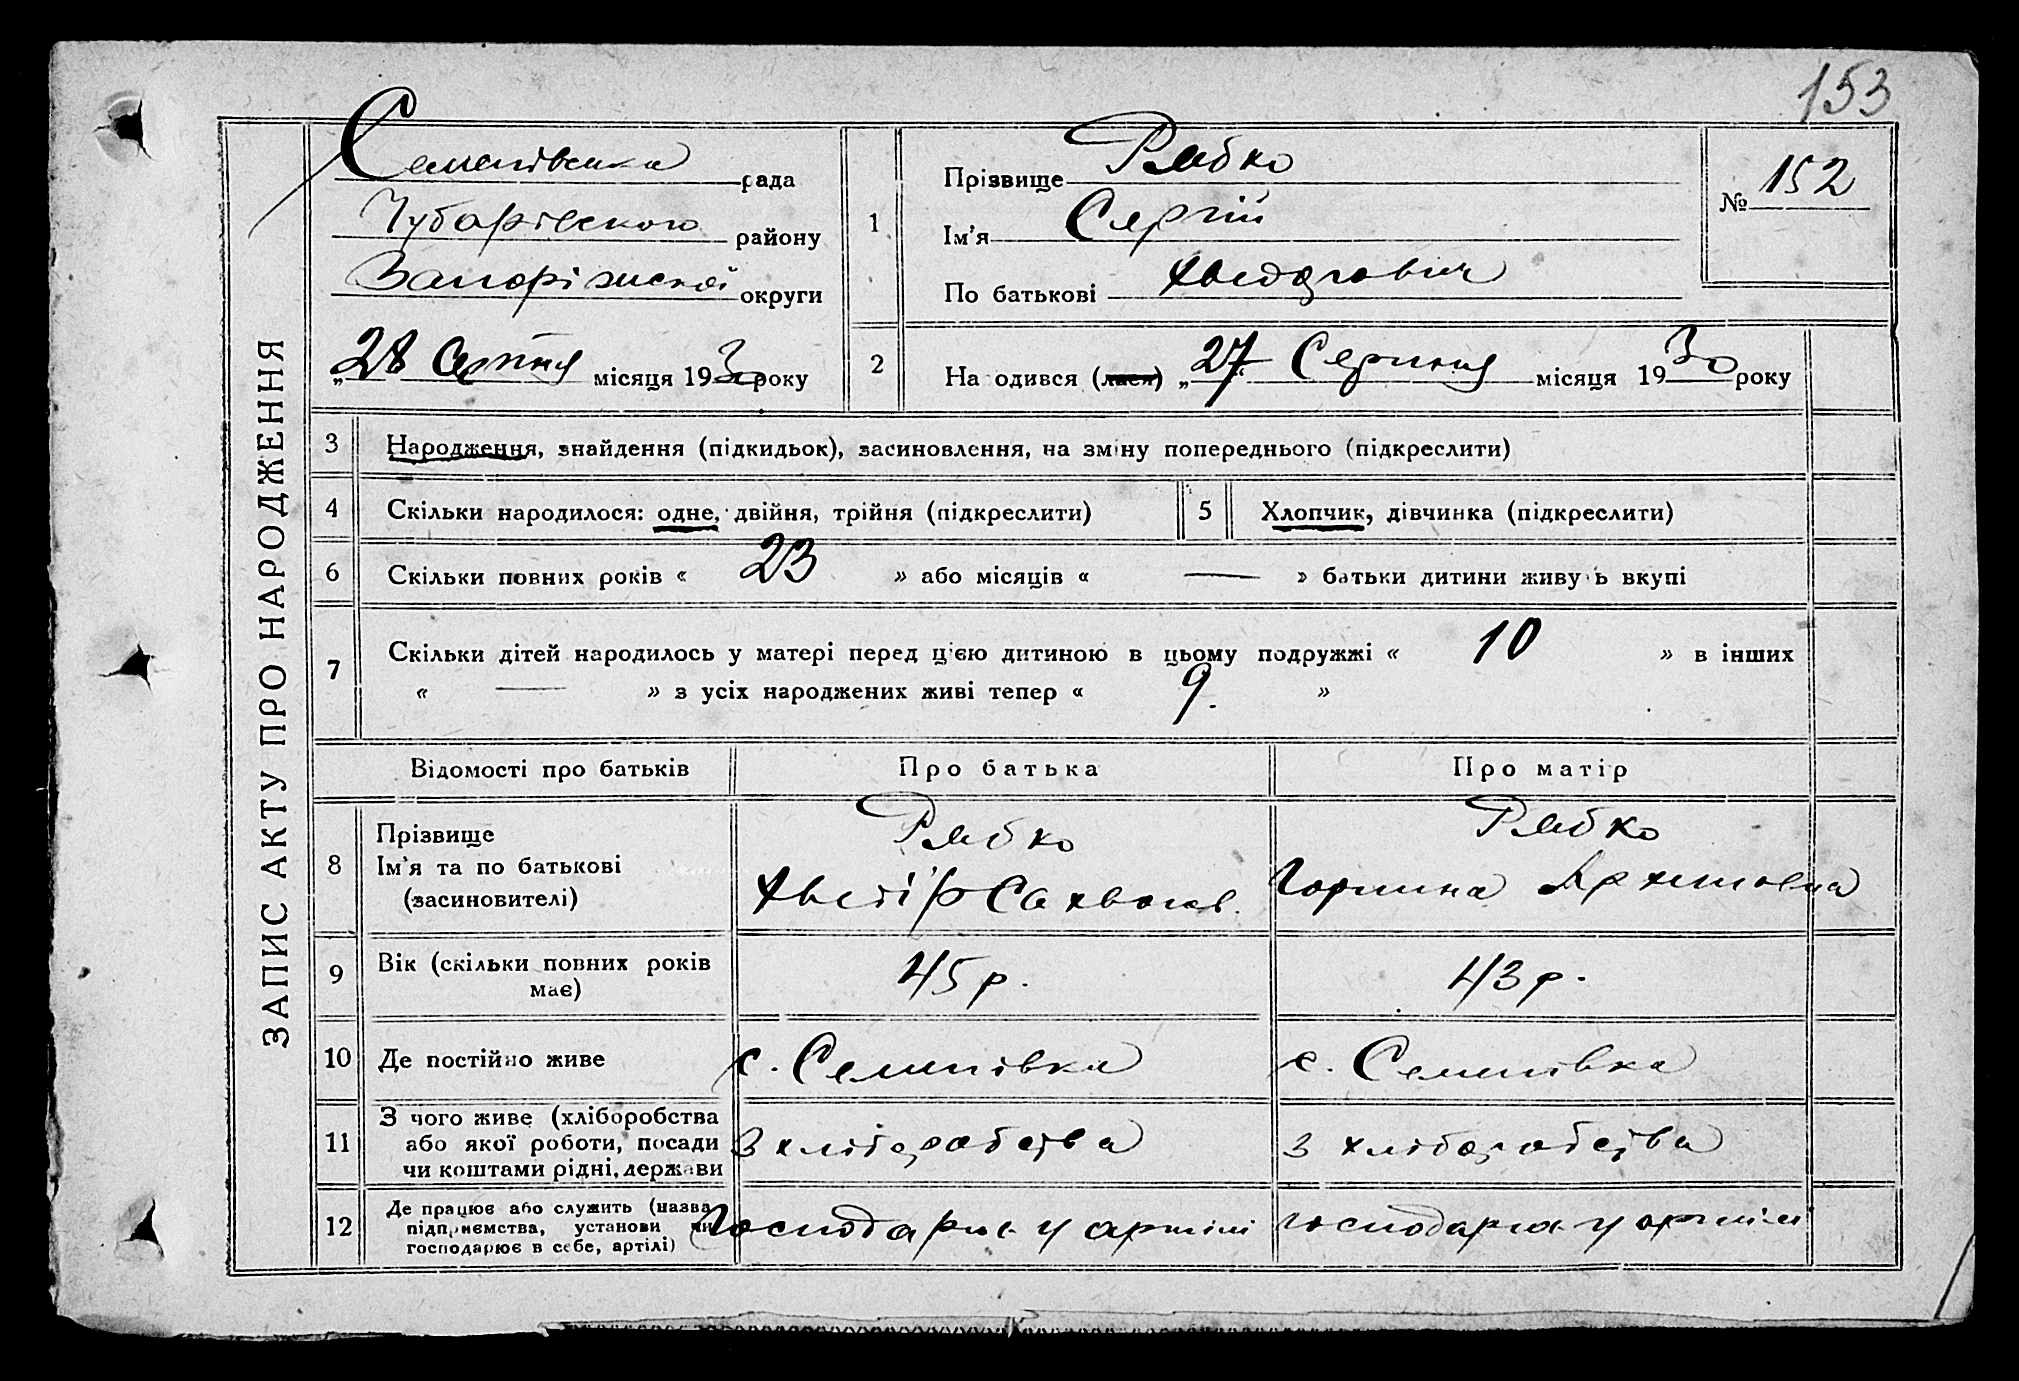 153
Семенівська рада
Чубарівського району
Запоріжської округи
„28 Серпня місяця 1930 року
1
Прізвище Рябко
Ім’я Сергій
По батькові
№ 152
2
Народився (лася) „27“ Серпня місяця 1930 року
ЗАПИС АКТУ ПРО НАРОДЖЕННЯ
3 Народження, знайдення (підкидьок), засиновлення, на зміну попереднього (підкреслити)
4 Скільки народилося: одне, двійня, трійня (підкреслити) 5 Хлопчик, дівчинка (підкреслити)
6 Скільки повних років « 23 » або місяців « — » батьки дитини живуть вкупі
7 Скільки дітей народилось у матері перед ц’єю дитиною в цьому подружжі « 10 » в інших
« — » з усіх народжених живі тепер « 9. »
Відомості про батьків Про батька Про матір
8 Прізвище Рябко Рябко
Ім’я та по батькові Горпина Архиповна
(засиновителі)
9 Вік (скільки повних років має) 45 р. 43 р.
10 Де постійно живе с. Семенівка с. Семенівка
11 З чого живе (хліборобства
або якої роботи, посади з хліборобства з хліборобства
чи коштами рідні, держави
12 Де працює або служить (назва
підприємства, установи чи господарює у артілі господарює у артілі
господарює в себе, артілі)